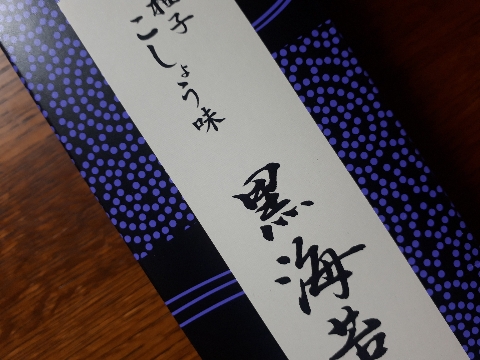 柚子こしょう味
黒海苔